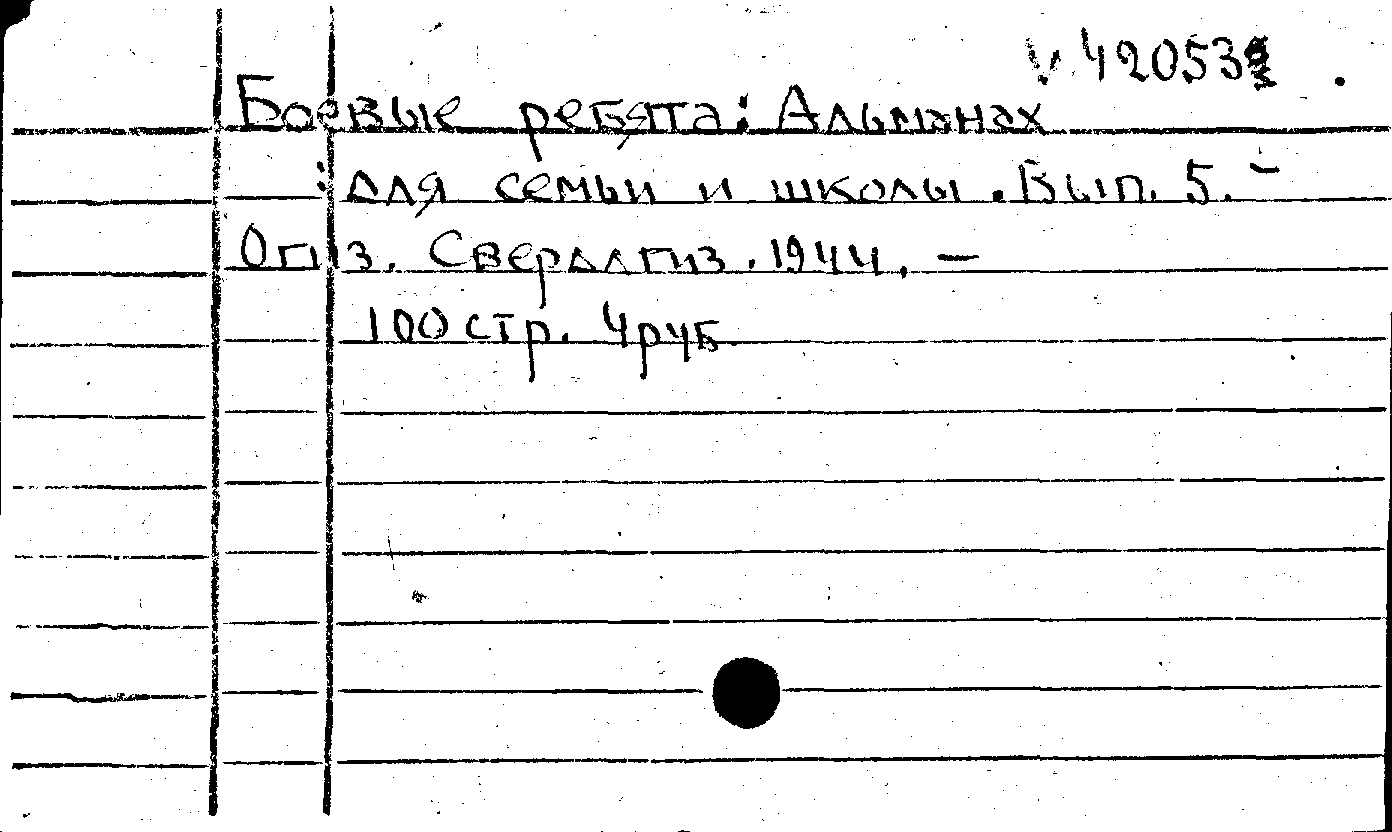 V 42053
Боевые ребята: Альманах
: для семьи и школы. Вып. 5. –
Огиз. Свердлгиз. 1944. –
100 стр. 4 руб.